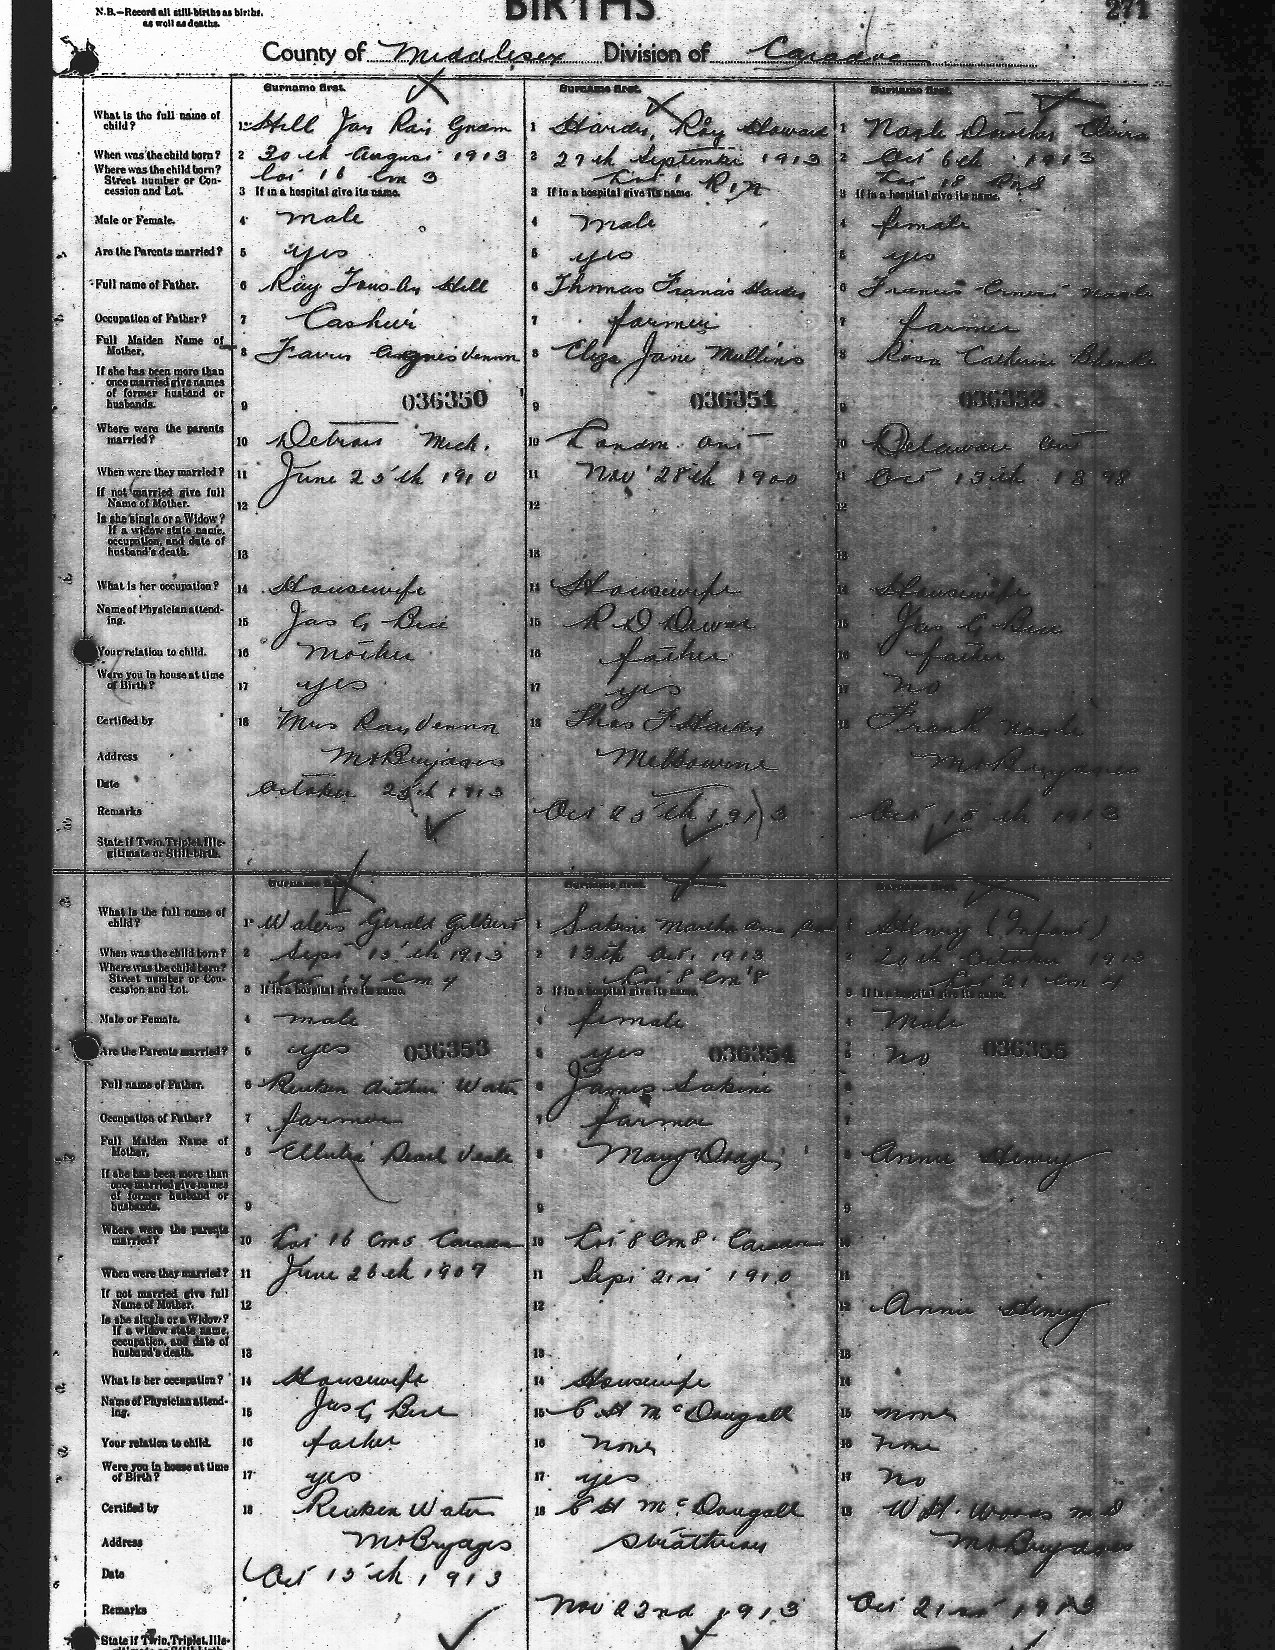 N.B.—Record all still-births as births, as well as deaths.
BIRTHS
271
County of Middlesex Division of Caradoc
Surname first. Surname first. Surname first.
What is the full name of child? 1 Hill Jas 1 Hardy, Roy Howard 1 Nagle Dorothy Elvira
When was the child born? 2 30th August 1913 2 27th September 1913 2 Oct 6th 1913
Where was the child born? Street number or Concession and Lot. Lot 16 Con 3 Lot 1 R 1 N Lot 18
3 If in a hospital give its name. 3 If in a hospital give its name. 3 If in a hospital give its name.
Male or Female. 4 male 4 male 4 female
Are the Parents married? 5 yes 5 yes 5 yes
Full name of Father. 6 Ray Hill 6 Thomas Francis Hardy 6 Francis Ernest Nagle
Occupation of Father? 7 Cashier 7 farmer 7 farmer
Full Maiden Name of Mother. 8 Agnes 8 Eliza Jane Mullins 8 Rosa Catherine
If she has been more than once married give names of former husband or husbands. 9 036350 9 036351 9 036352
Where were the parents married? 10 Detroit Mich. 10 London Ont 10 Delaware Ont
When were they married? 11 June 25th 1910 11 Nov 28th 1900 11 Oct 13th 1898
If not married give full Name of Mother. 12 12 12
Is she single or a Widow? If a widow state name, occupation, and date of husband's death. 13 13 13
What is her occupation? 14 Housewife 14 Housewife 14 Housewife
Name of Physician attending. 15 Jas G Bice 15 R D Dewar 15 Jas G Bice
Your relation to child. 16 Mother 16 father 16 father
Were you in house at time of Birth? 17 yes 17 yes 17 no
Certified by 18 Mrs Ray 18 Thos F Hardy 18 Frank Nagle
Address Mt Brydges Melbourne Mt Brydges
Date October 25th 1913
Remarks Oct 25th 1913 Oct 15th 1913
State if Twin, Triplet, Illegitimate or Still-birth.
Surname first. Surname first. Surname first.
What is the full name of child? 1 Waters Gerald Gilbert 1 Sakine Martha Ann 1 Henry (Infant)
When was the child born? 2 Sept 15th 1913 2 13th Oct. 1913 2 20th October 1913
Where was the child born? Street number or Concession and Lot. Lot 17 Con 4 Lot 8 Con 8 Lot 21 Con 4
3 If in a hospital give its name. 3 If in a hospital give its name. 3 If in a hospital give its name.
Male or Female. 4 male 4 female 4 Male
Are the Parents married? 5 yes 036353 5 yes 036354 5 no 036355
Full name of Father. 6 Reuben Arthur Waters 6 James Sakine 6
Occupation of Father? 7 farmer 7 farmer 7
Full Maiden Name of Mother. 8 Pearl Veale 8 Mary 8 Annie Henry
If she has been more than once married give names of former husband or husbands. 9 9 9
Where were the parents married? 10 Lot 16 Con 5 Caradoc 10 Lot 8 Con 8 Caradoc 10
When were they married? 11 June 26th 1907 11 Sept 21st 1910 11
If not married give full Name of Mother. 12 12 12 Annie Henry
Is she single or a Widow? If a widow state name, occupation, and date of husband's death. 13 13 13
What is her occupation? 14 Housewife 14 Housewife 14
Name of Physician attending. 15 Jas G Bice 15 C H McDougall 15 none
Your relation to child. 16 father 16 none 16 none
Were you in house at time of Birth? 17 yes 17 yes 17 no
Certified by 18 Reuben Waters 18 C H McDougall 18 W. H. Woods M D
Address Mt Brydges Strathroy Mt Brydges
Date Oct 15th 1913
Remarks Nov 22nd 1913 Oct 21st 1913
State if Twin, Triplet, Illegitimate or Still-birth.